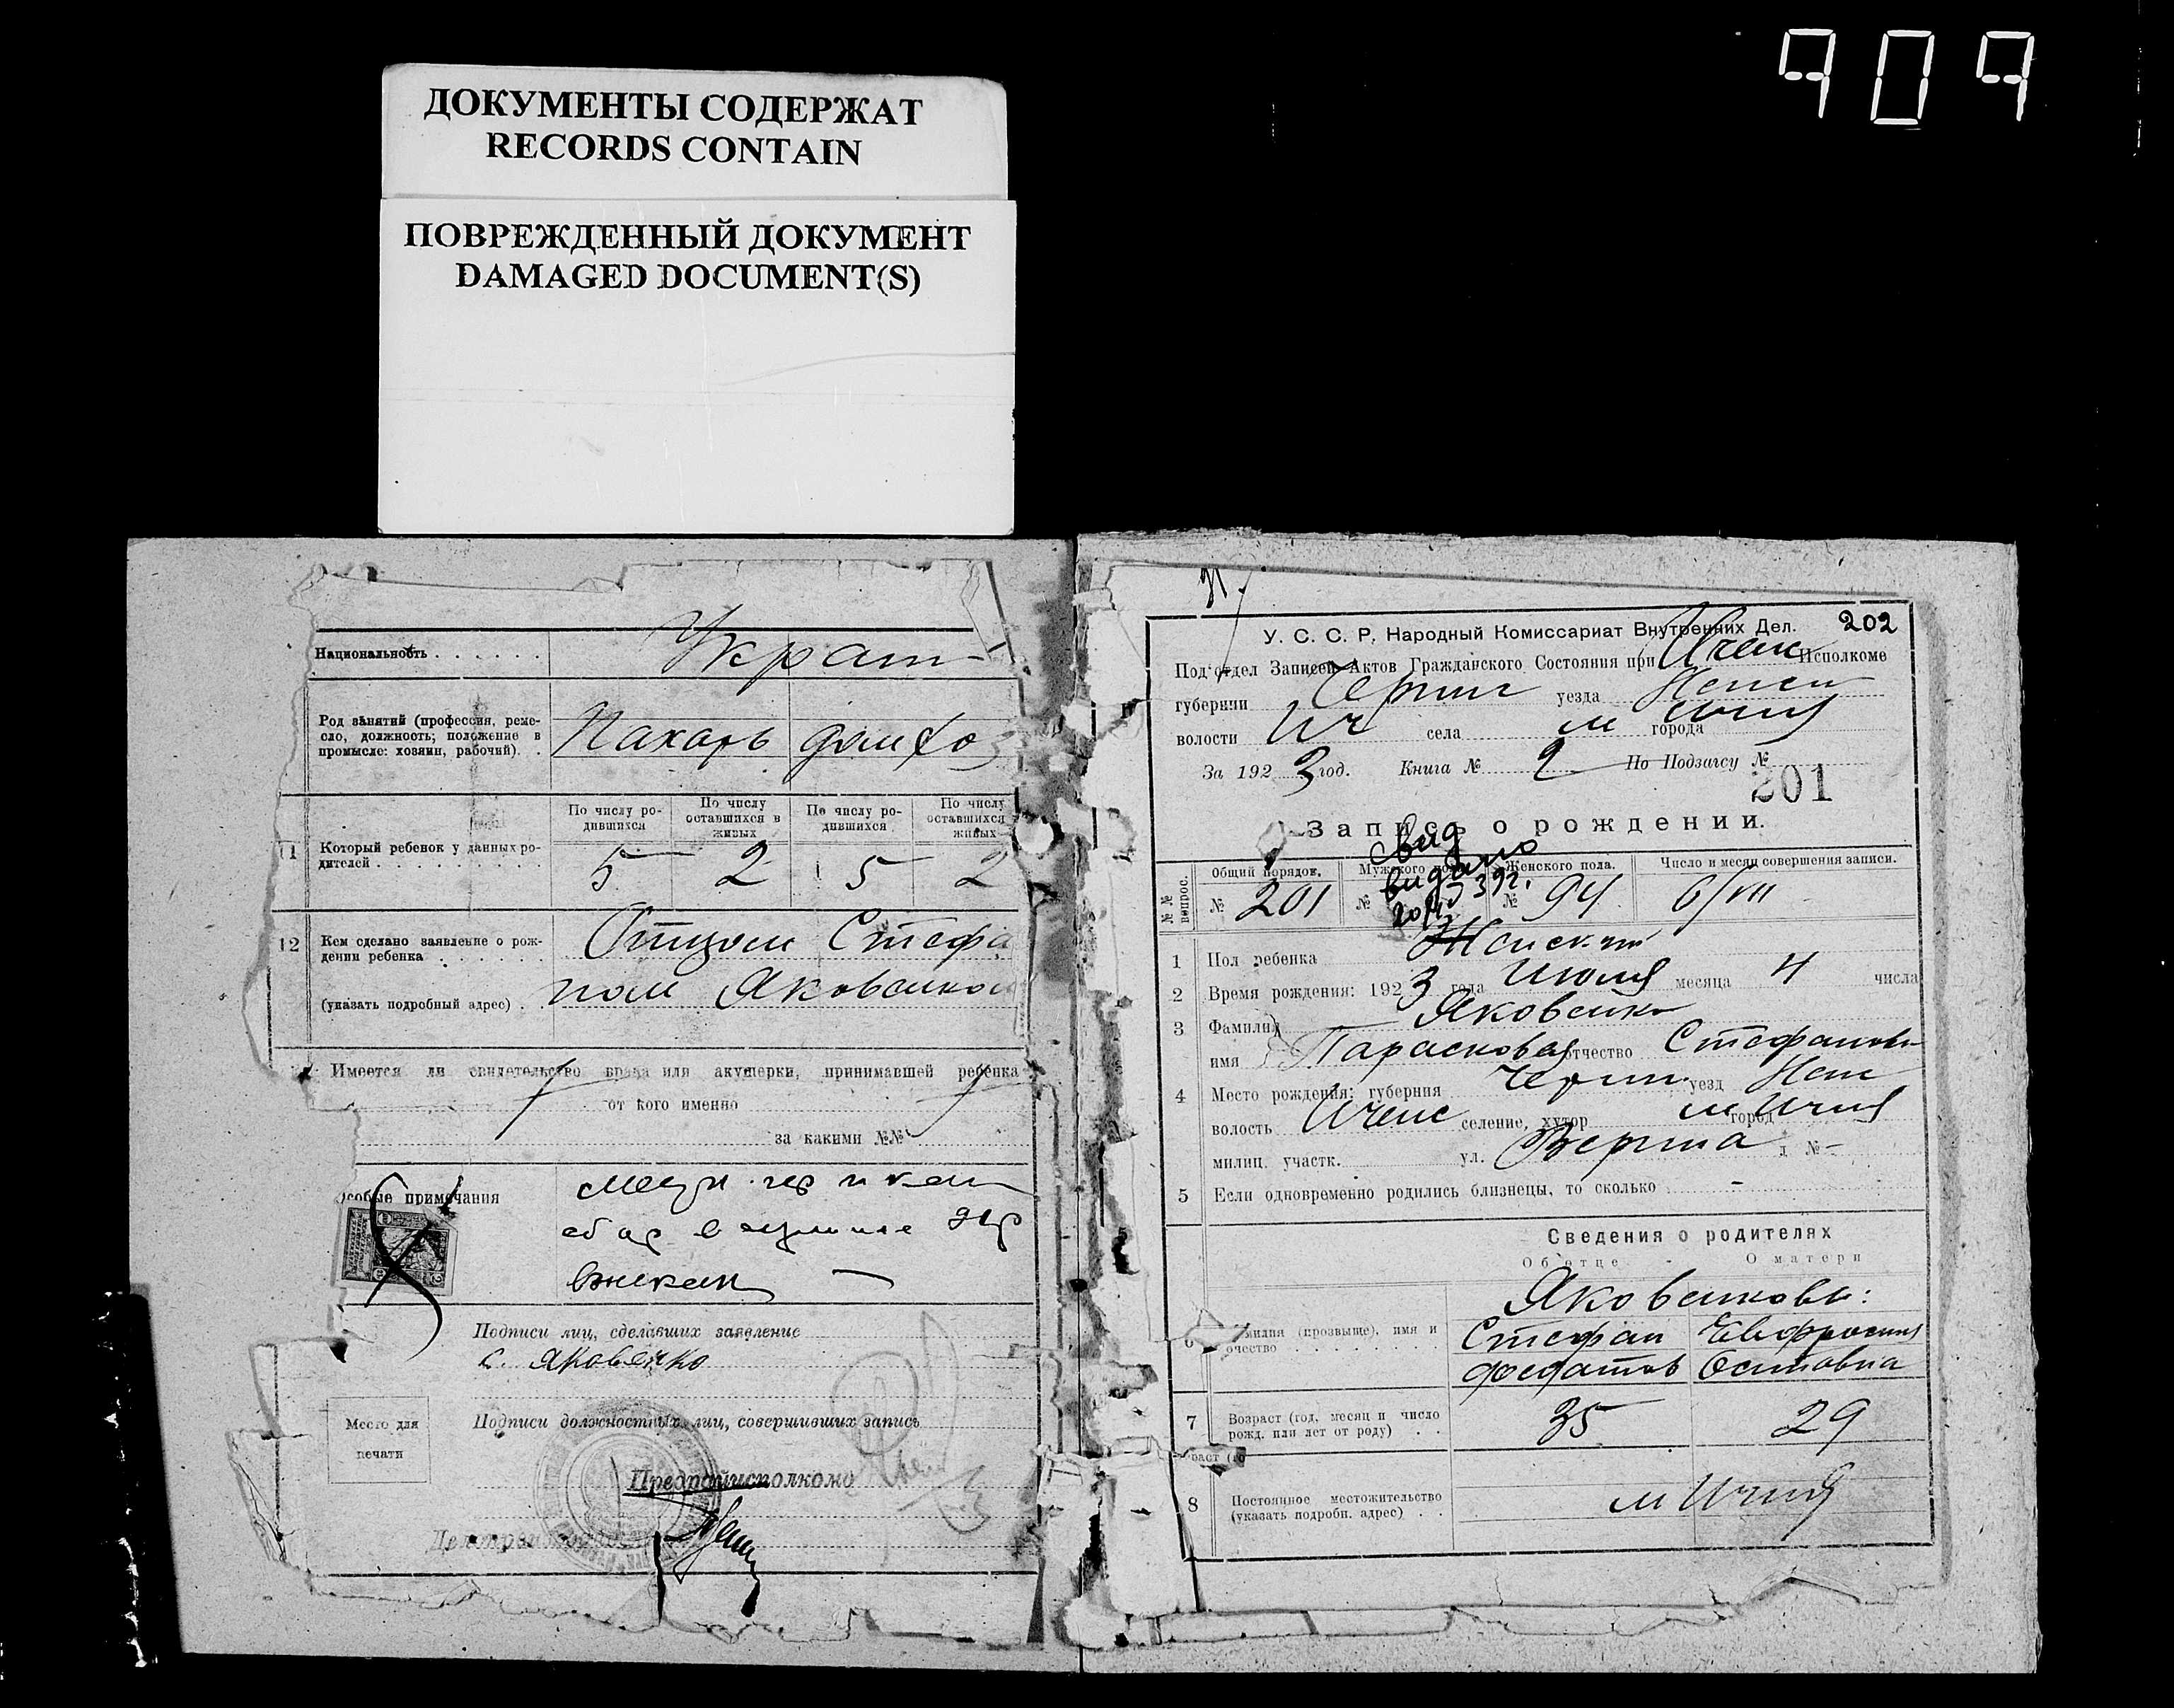 909
ДОКУМЕНТЫ СОДЕРЖАТ
RECORDS CONTAIN
ПОВРЕЖДЕННЫЙ ДОКУМЕНТ
DAMAGED DOCUMENT(S)
Национальность . . . . . . Украин
Род занятий (профессия, реме-
сло, должность; положение в
промысле: хозяин, рабочий). . Пахарь домхоз
По числу ро-
дившихся
По числу
оставшихся в
живых
По числу ро-
дившихся
По числу
оставшихся
живых
11 Который ребенок у данных ро-
дителей . . . . . . . . . . 5 2 5 2
12 Кем сделано заявление о рож-
дении ребенка . . . . . . Отцом Стефа
(указать подробный адрес) . . ном Яковенком
Имеется ли свидетельство врача или акушерки, принимавшей ребенка
от кого именно
за какими №№
Особые примечания
Подписи лиц, сделавших заявление
С. Яковенко
Место для
печати
Подписи должностных лиц, совершивших запись
Предрайисполкома
202
У. С. С. Р. Народный Комиссариат Внутренних Дел.
Под'отдел Записей Актов Гражданского Состояния при Ичен Исполкоме
губернии Черниг уезда Нежен
волости Ич села м города Ичня
За 1923 год. Книга № 2 По Подзагсу №
201
Запись о рождении.
Свид
видано
№№ вопрос.
Общий порядок. Мужского пола. Женского пола. Число и месяц совершения записи.
№ 201 № № 94 6/VII
1 Пол ребенка Женский
2 Время рождения: 1923 года Июля месяца 4 числа
3 Фамилия Яковенко
имя Парасковья отчество Стефановн
4 Место рождения: губерния Черниг. уезд Неж
волость Ичен селение, хутор город м Ичня
милиц. участк. ул. д №-
5 Если одновременно родились близнецы, то сколько -
Сведения о родителях
Об отце - О матери
Яковенковы:
6 Фамилия (прозвище), имя и
отчество . . . . . . . . . Стефан Евфросиния
Федотов Осиповна
7 Возраст (год, месяц и число
рожд. или лет от роду) . . 35 29
8 Постоянное местожительство
(указать подробн. адрес) . . м Ичня